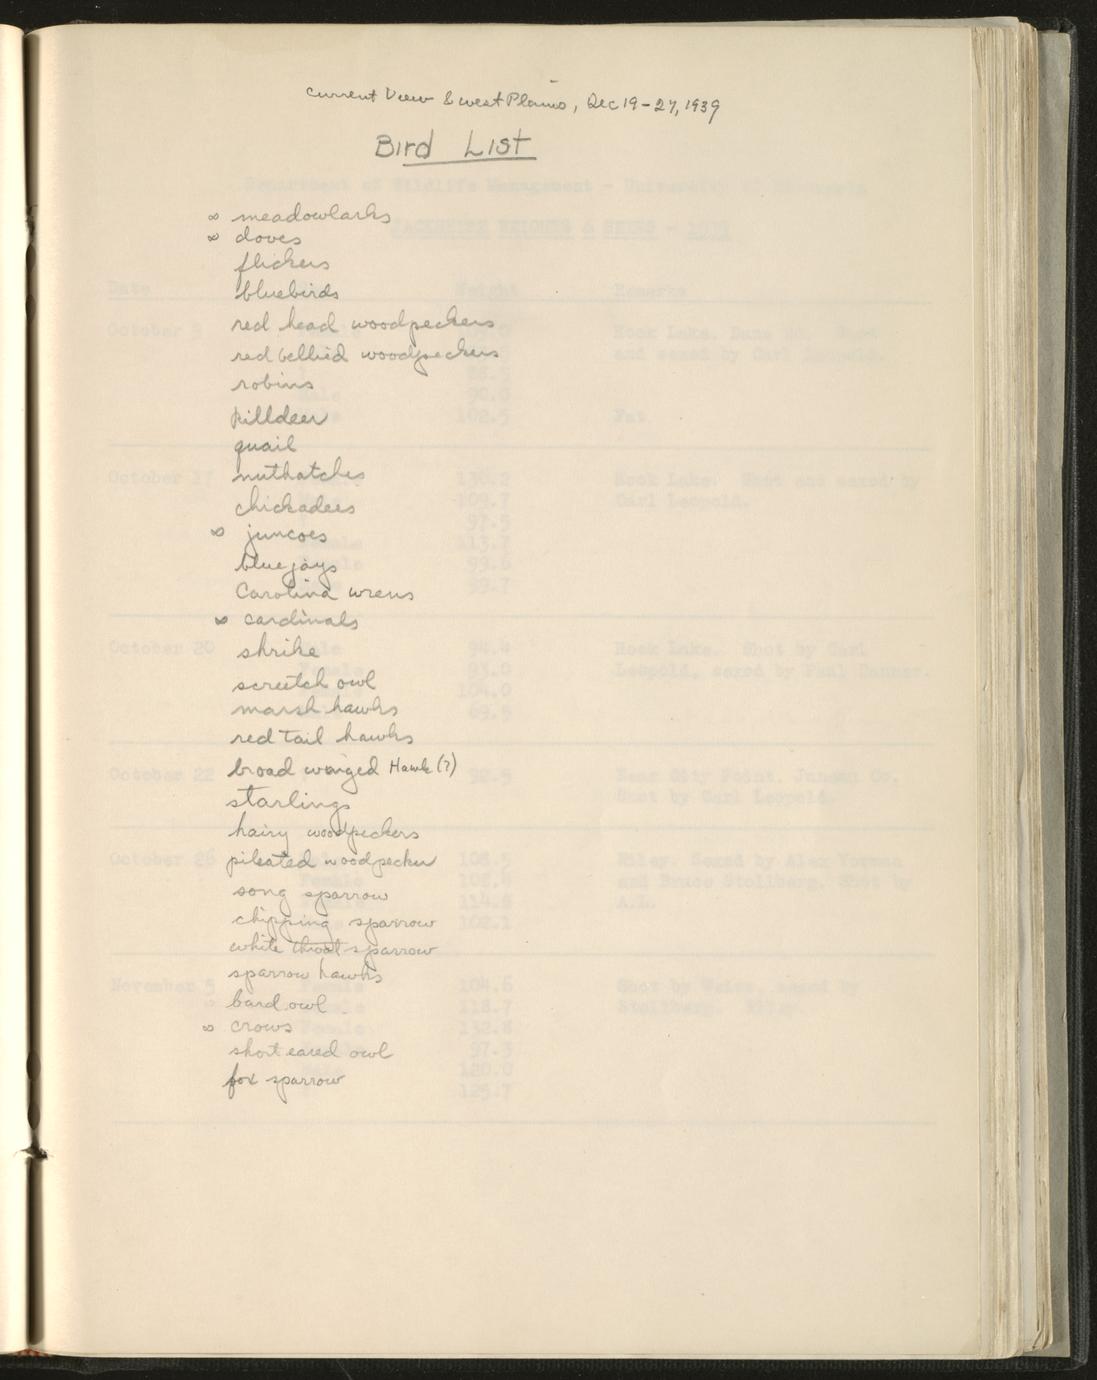 Current View & West Plains, Dec 19-27, 1939
Bird List
∞ meadowlarks
∞ doves
flickers
bluebirds
red head woodpeckers
red bellied woodpeckers
robins
killdeer
quail
nuthatches
chickadees
∞ juncoes
bluejays
Carolina wrens
∞ cardinals
shrike
screetch owl
marsh hawks
red tail hawks
broad winged Hawk (?)
starlings
hairy woodpeckers
pileated woodpecker
song sparrow
chipping sparrow
white throat sparrow
sparrow hawks
bard owl
∞ crows
short eared owl
fox sparrow